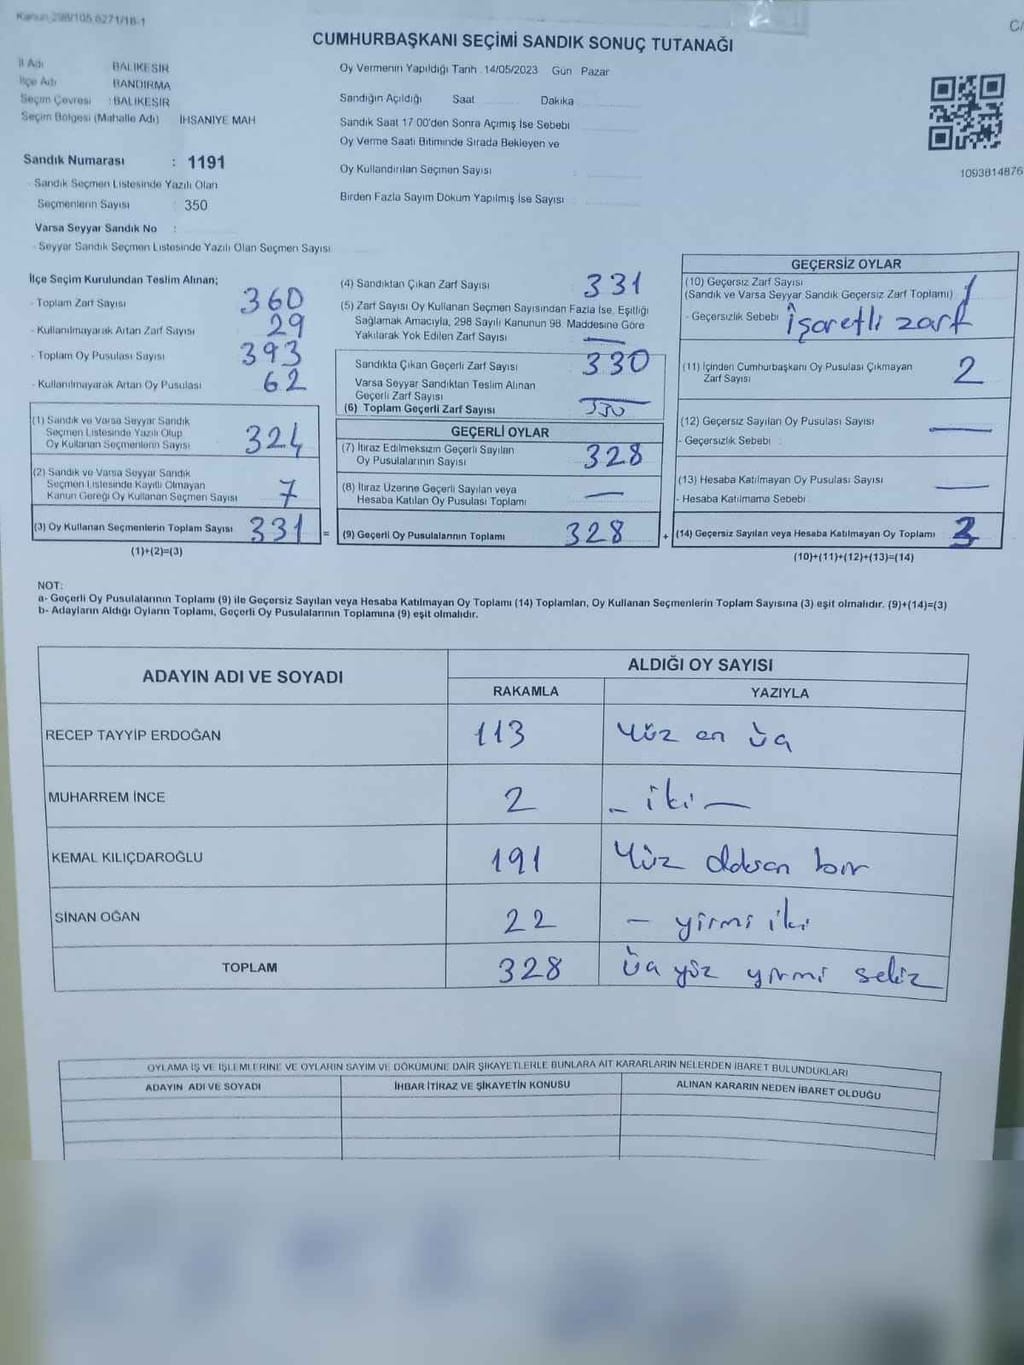 Kanun 298/105 6271/18-1
CUMHURBAŞKANI SEÇİMİ SANDIK SONUÇ TUTANAĞI
İl Adı BALIKESİR
İlçe Adı BANDIRMA
Seçim Çevresi : BALIKESİR
Seçim Bölgesi (Mahalle Adı) İHSANİYE MAH
Sandık Numarası : 1191
Sandık Seçmen Listesinde Yazılı Olan
Seçmenlerin Sayısı : 350
Varsa Seyyar Sandık No :
- Seyyar Sandık Seçmen Listesinde Yazılı Olan Seçmen Sayısı
Oy Vermenin Yapıldığı Tarih 14/05/2023 Gün Pazar
Sandığın Açıldığı Saat Dakika
Sandık Saat 17 00'den Sonra Açımış İse Sebebi
Oy Verme Saati Bitiminde Sırada Bekleyen ve
Oy Kullandırılan Seçmen Sayısı :
Birden Fazla Sayım Döküm Yapılmış İse Sayısı
1093814876
İlçe Seçim Kurulundan Teslim Alınan;
- Toplam Zarf Sayısı 360
- Kullanılmayarak Artan Zarf Sayısı 29
- Toplam Oy Pusulası Sayısı 393
- Kullanılmayarak Artan Oy Pusulası 62
(1) Sandık ve Varsa Seyyar Sandık
Seçmen Listesinde Yazılı Olup
Oy Kullanan Seçmenlerin Sayısı 324
(2) Sandık ve Varsa Seyyar Sandık
Seçmen Listesinde Kayıtlı Olmayan
Kanun Gereği Oy Kullanan Seçmen Sayısı 7
(3) Oy Kullanan Seçmenlerin Toplam Sayısı 331 =
(1)+(2)=(3)
(4) Sandıktan Çıkan Zarf Sayısı 331
(5) Zarf Sayısı Oy Kullanan Seçmen Sayısından Fazla İse, Eşitliği
Sağlamak Amacıyla, 298 Sayılı Kanunun 98. Maddesine Göre
Yakılarak Yok Edilen Zarf Sayısı —
Sandıkta Çıkan Geçerli Zarf Sayısı 330
Varsa Seyyar Sandıktan Teslim Alınan
Geçerli Zarf Sayısı —
(6) Toplam Geçerli Zarf Sayısı 330
GEÇERLİ OYLAR
(7) İtiraz Edilmeksizin Geçerli Sayılan
Oy Pusulalarının Sayısı 328
(8) İtiraz Üzerine Geçerli Sayılan veya
Hesaba Katılan Oy Pusulası Toplamı —
(9) Geçerli Oy Pusulalarının Toplamı 328 +
GEÇERSİZ OYLAR
(10) Geçersiz Zarf Sayısı
(Sandık ve Varsa Seyyar Sandık Geçersiz Zarf Toplamı) 1
- Geçersizlik Sebebi : İşaretli zarf
(11) İçinden Cumhurbaşkanı Oy Pusulası Çıkmayan
Zarf Sayısı 2
(12) Geçersiz Sayılan Oy Pusulası Sayısı —
- Geçersizlik Sebebi :
(13) Hesaba Katılmayan Oy Pusulası Sayısı —
- Hesaba Katılmama Sebebi :
(14) Geçersiz Sayılan veya Hesaba Katılmayan Oy Toplamı 3
(10)+(11)+(12)+(13)=(14)
NOT:
a- Geçerli Oy Pusulalarının Toplamı (9) ile Geçersiz Sayılan veya Hesaba Katılmayan Oy Toplamı (14) Toplamları, Oy Kullanan Seçmenlerin Toplam Sayısına (3) eşit olmalıdır. (9)+(14)=(3)
b- Adayların Aldığı Oyların Toplamı, Geçerli Oy Pusulalarının Toplamına (9) eşit olmalıdır.
ADAYIN ADI VE SOYADI ALDIĞI OY SAYISI
RAKAMLA YAZIYLA
RECEP TAYYİP ERDOĞAN 113 Yüz on üç
MUHARREM İNCE 2 - iki —
KEMAL KILIÇDAROĞLU 191 Yüz doksan bir
SİNAN OĞAN 22 - yirmi iki
TOPLAM 328 üç yüz yirmi sekiz
OYLAMA İŞ VE İŞLEMLERİNE VE OYLARIN SAYIM VE DÖKÜMÜNE DAİR ŞİKAYETLERLE BUNLARA AİT KARARLARIN NELERDEN İBARET BULUNDUKLARI
ADAYIN ADI VE SOYADI İHBAR İTİRAZ VE ŞİKAYETİN KONUSU ALINAN KARARIN NEDEN İBARET OLDUĞU